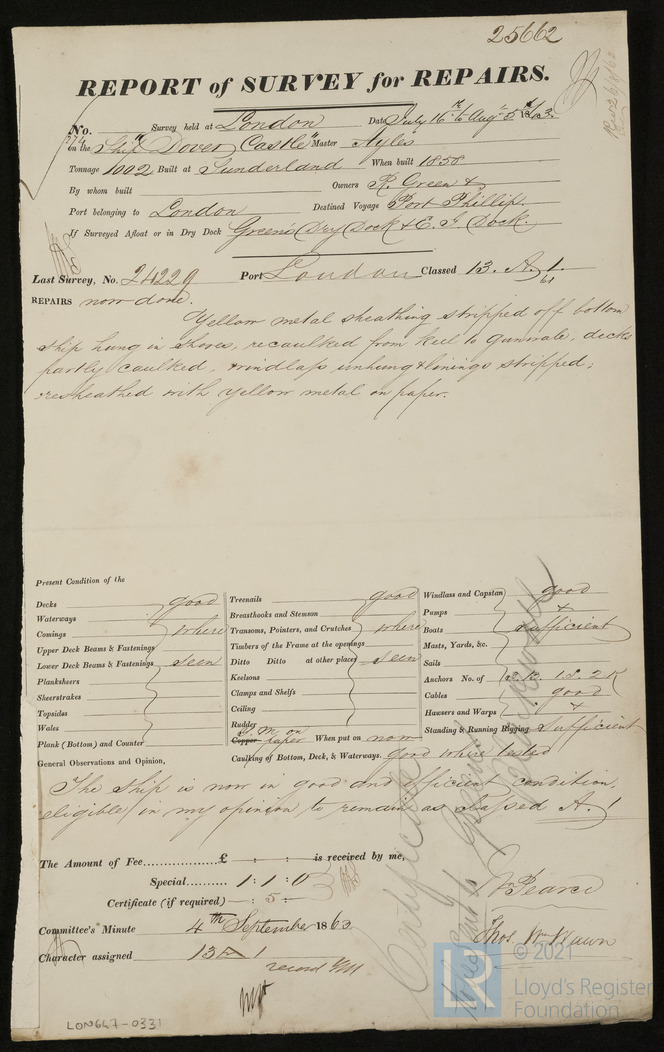 25662
REPORT of SURVEY for REPAIRS.
No. 274 Survey held at London Date July 16th to Augt 5th 1863
on the Ship "Dover Castle" Master Ayles
Tonnage 1002 Built at Sunderland When built 1858
By whom built Owners R. Green &
Port belonging to London Destined Voyage Port Phillip
If Surveyed Afloat or in Dry Dock Green's Dry Dock & E. I. Dock.
Last Survey, No. 24229 Port London Classed 13. A. 1. 61
REPAIRS now done.
Yellow metal sheathing stripped off bottom
ship hung in shores, recaulked from keel to gunwale, decks
partly caulked, windlass unhung & linings stripped,
resheathed with yellow metal on paper.
Present Condition of the
Decks good
Waterways
Comings where
Upper Deck Beams & Fastenings
Lower Deck Beams & Fastenings seen
Planksheers
Sheerstrakes
Topsides
Wales
Plank (Bottom) and Counter
Treenails good
Breasthooks and Stemson
Transoms, Pointers, and Crutches where
Timbers of the Frame at the openings
Ditto Ditto at other places seen
Keelsons
Clamps and Shelfs
Ceiling
Rudder
Y. M. on
Copper paper When put on now
Caulking of Bottom, Deck, & Waterways. good where tested
Windlass and Capstan good
Pumps +
Boats sufficient
Masts, Yards, &c.
Sails
Anchors No. of 3.B. 1.S. 2K
Cables good
Hawsers and Warps +
Standing & Running Rigging sufficient
General Observations and Opinion,
The ship is now in good and efficient condition,
eligible in my opinion to remain as classed A. 1
The Amount of Fee £ : : is received by me,
Special 1 : 1 : 0
Certificate (if required) : 5 :
Wm Pearce
Committee's Minute 4th September 1863
Thos. Wm Wawn
Character assigned 13 A 1
record YM
LON647-0331
© 2021
LR
Lloyd's Register
Foundation